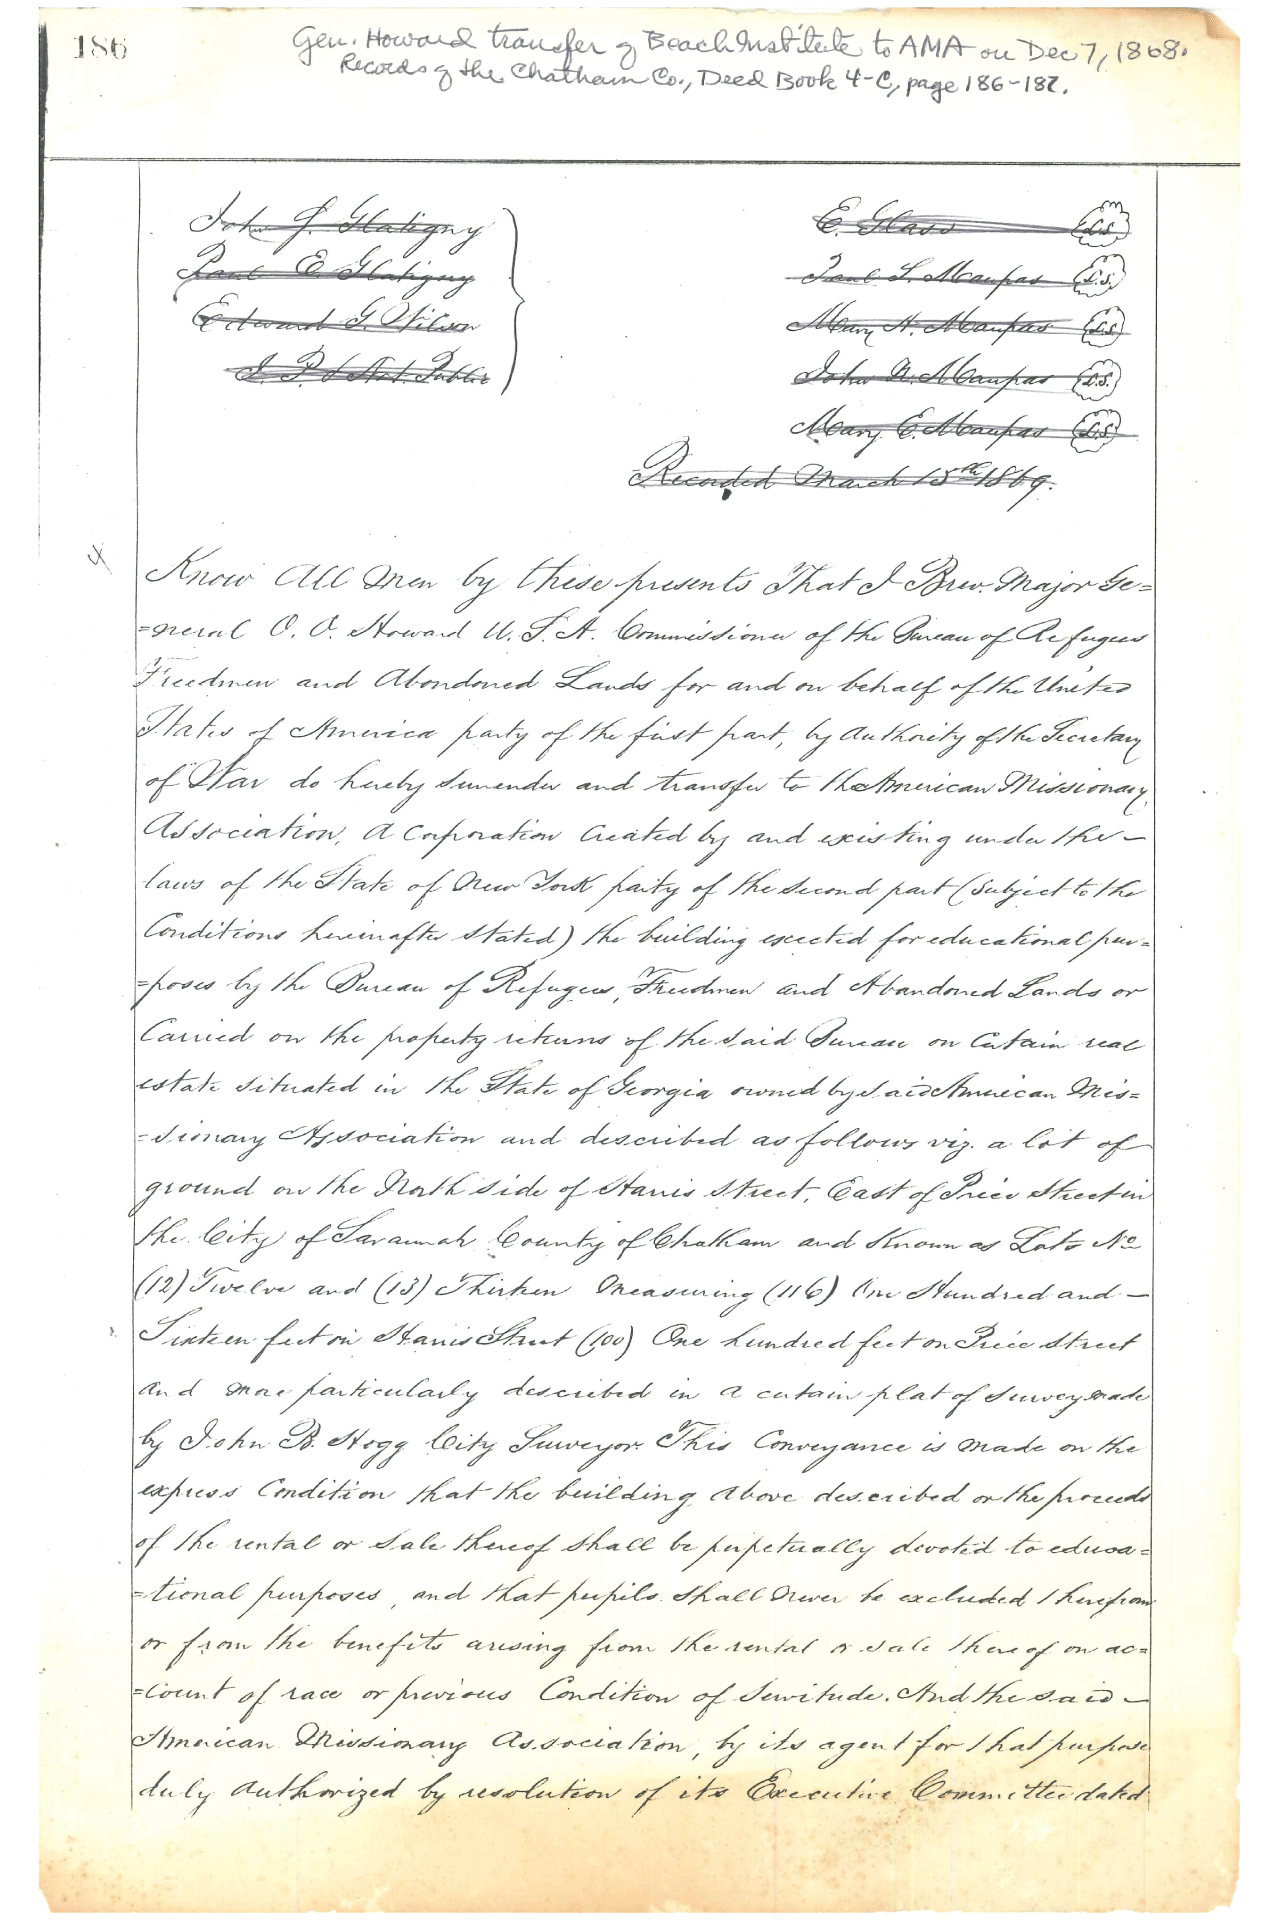 186
Gen. Howard transfer of Beach Institute to AMA on Dec 7, 1868.
Records of the Chatham Co., Deed Book 4-C, page 186-187.
John F. Glatigny
Paul E Glatigny
Edward G. Wilson
J. P. & Not. Public
E. Glass L.S.
Paul L. Maupas L.S.
Mary H. Maupas L.S.
John N. Maupas L.S.
Mary E. Maupas L.S.
Recorded March 15th 1869.
4
Know All Men by these presents That I Brev. Major Ge=
=neral O. O. Howard U. S. A. Commissioner of the Bureau of Refugees
Freedmen and Abondoned Lands for and on behalf of the United
States of America party of the first part, by authority of the Secretary
of War do hereby surrender and transfer to the American Missionary
Association, A Corporation Created by and existing under the —
laws of the State of New York party of the second part (Subject to the
Conditions hereinafter Stated) the building erected for educational pur=
=poses by the Bureau of Refugees, Freedmen and Abandoned Lands or
Carried on the property returns of the said Bureau on Certain real
estate situated in the State of Georgia owned by said American Mis=
=sionary Association and described as follows viz. a lot of
ground on the North side of Harris Street, East of Price Street in
the City of Savannah County of Chatham and Known as Lots No
(12) Twelve and (13) Thirteen Measuring (116) One Hundred and —
Sixteen feet on Harris Street (100) One hundred feet on Price Street
and more particularly described in a certain plat of survey made
by John B. Hogg City Surveyor. This Conveyance is made on the
express Condition that the building above described or the proceeds
of the rental or sale thereof shall be perpetually devoted to educa=
=tional purposes, and that pupils shall never be excluded therefrom
or from the benefits arising from the rental or sale thereof on ac=
=count of race or previous Condition of Servitude. And the said —
American Missionary Association, by its agent for that purpose
duly authorized by resolution of its Executive Committee dated